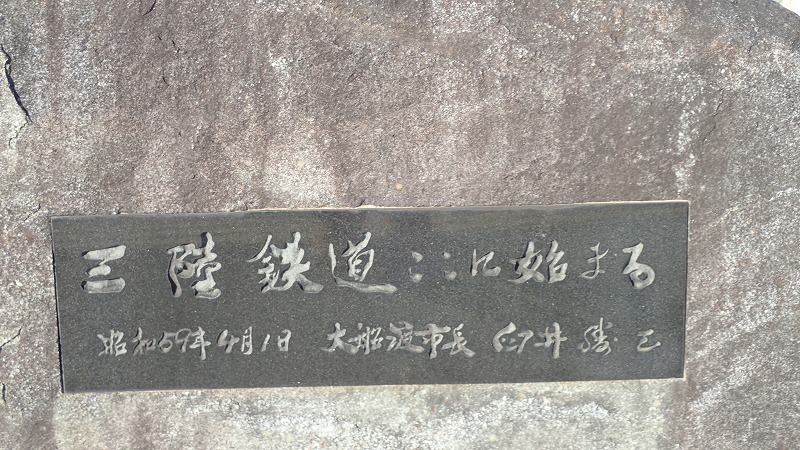 三陸鉄道ここに始まる
昭和59年4月1日 大船渡市長 臼井勝三